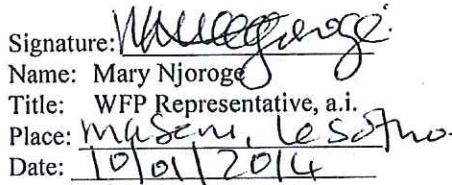 Signature: MNjoroge
Name: Mary Njoroge
Title: WFP Representative, a.i.
Place: Maseru, Lesotho.
Date: 10/01/2014